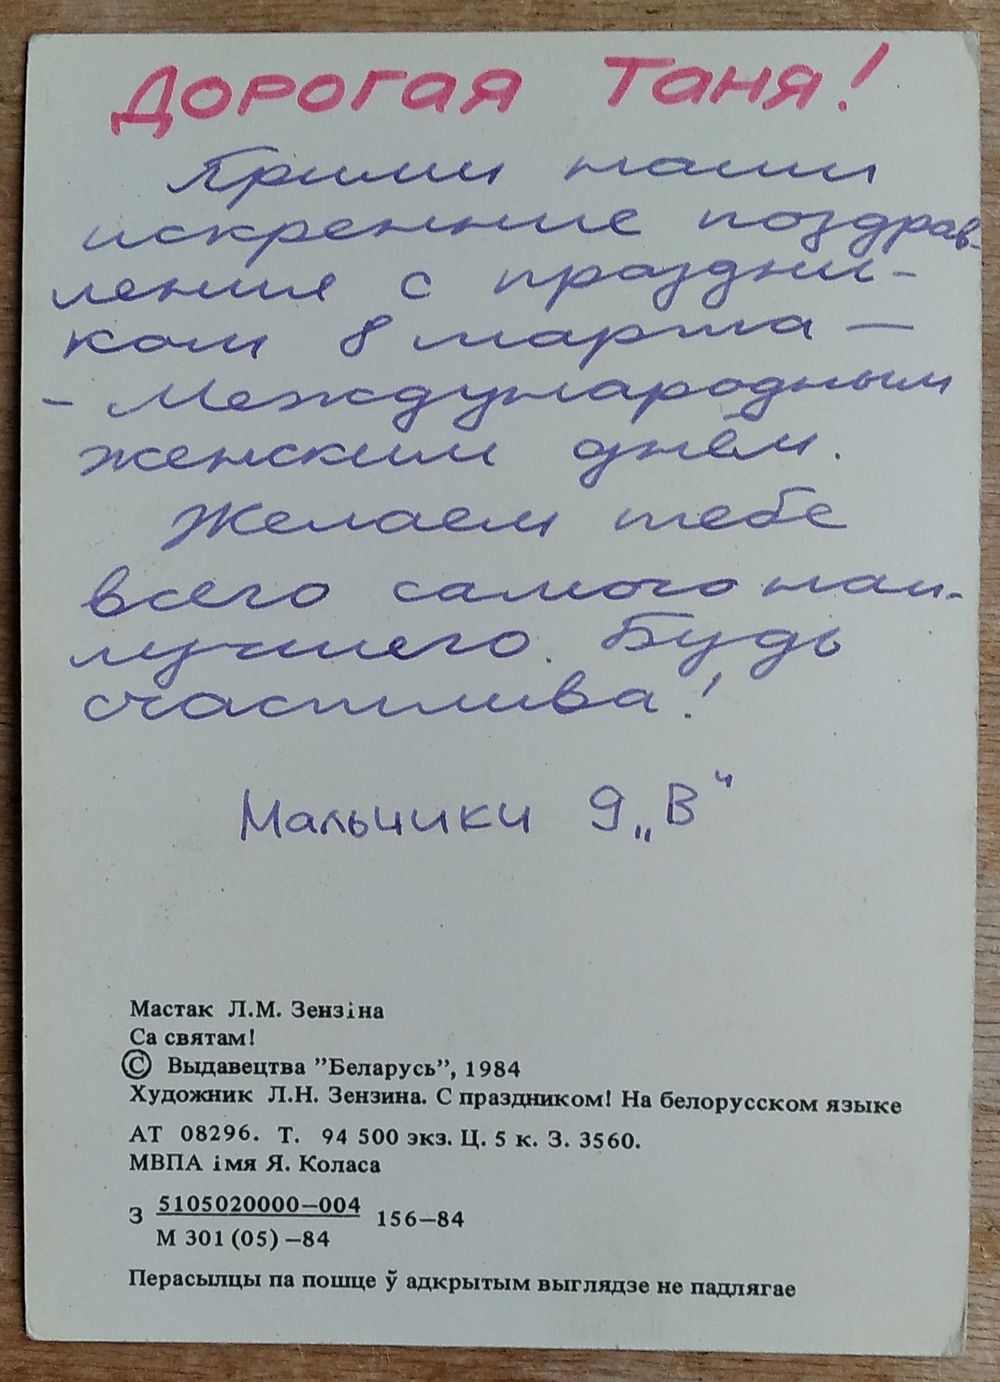 Дорогая Таня!
Прими наши
искренние поздрав-
ления с праздни-
ком 8 марта —
- Международным
женским днём.
Желаем тебе
всего самого наи-
лучшего. Будь
счастлива!
Мальчики 9 „В“
Мастак Л.М. Зензіна
Са святам!
© Выдавецтва ”Беларусь”, 1984
Художник Л.Н. Зензина. С праздником! На белорусском языке
АТ 08296. Т. 94 500 экз. Ц. 5 к. З. 3560.
МВПА імя Я. Коласа
З 5105020000—004 156—84
М 301 (05) —84
Перасылцы па пошце ў адкрытым выглядзе не падлягае